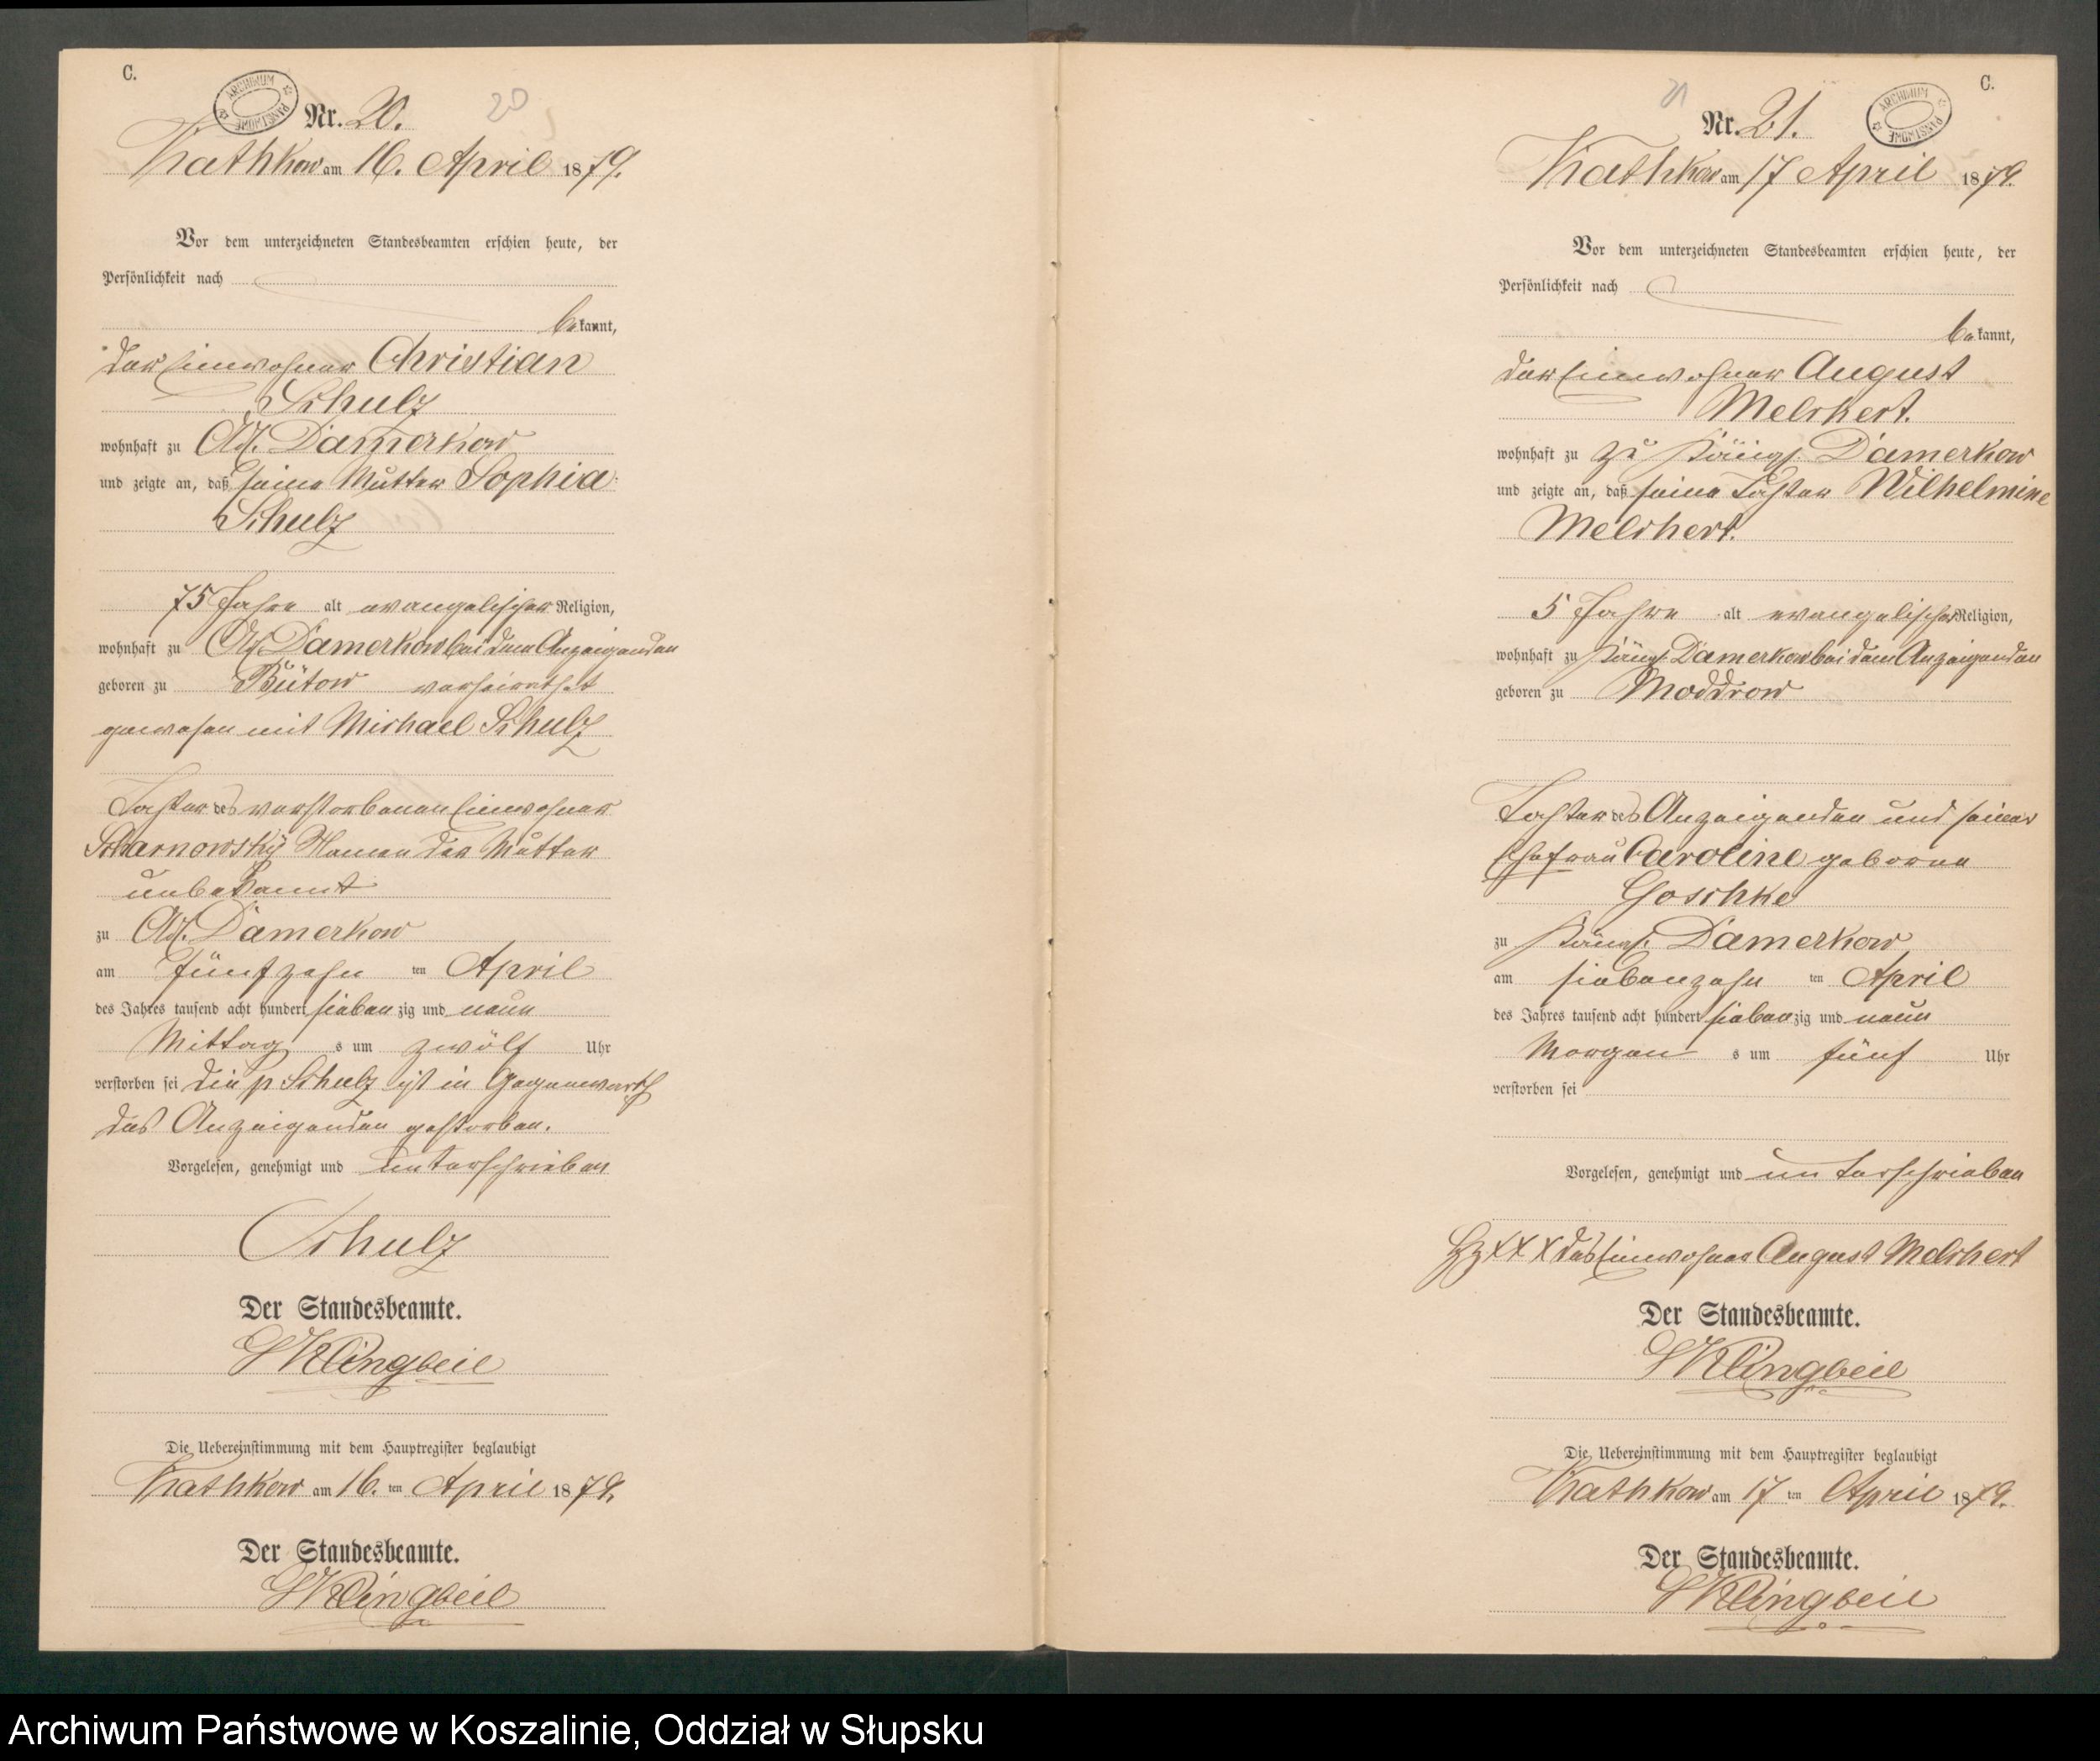 C.
ARCHIWUM PAŃSTWOWE
Nr. 20.
20
Kathkow am 16. April 1879.
Vor dem unterzeichneten Standesbeamten erschien heute, der
Persönlichkeit nach
bekannt,
der Einwohner Christian
Schulz
wohnhaft zu Adl. Damerkow
und zeigte an, daß seine Mutter Sophia
Schulz
75 Jahre alt evangelischer Religion,
wohnhaft zu Adl. Damerkow bei dem Anzeigenden
geboren zu Bütow verheirathet
gewesen mit Michael Schulz
Tochter des verstorbenen Einwohner
Scharnowsky Namen der Mutter
unbekannt
zu Adl. Damerkow
am fünfzehn ten April
des Jahres tausend acht hundert siebenzig und neun
Mittag s um zwölf Uhr
verstorben sei die p Schulz ist in Gegenwarth
des Anzeigenden gestorben.
Vorgelesen, genehmigt und unterschrieben
Schulz
Der Standesbeamte.
Klingbeil
Die Uebereinstimmung mit dem Hauptregister beglaubigt
Kathkow am 16. ten April 1879.
Der Standesbeamte.
Klingbeil
C.
ARCHIWUM PAŃSTWOWE
21
Nr. 21.
Kathkow am 17 April 1879.
Vor dem unterzeichneten Standesbeamten erschien heute, der
Persönlichkeit nach
bekannt,
der Einwohner August
Melchert.
wohnhaft zu zu Königl. Damerkow
und zeigte an, daß seine Tochter Wilhelmine
Melchert.
5 Jahre alt evangelischer Religion,
wohnhaft zu Königl. Damerkow bei dem Anzeigenden
geboren zu Moddrow
Tochter des Anzeigenden und seiner
Ehefrau Caroline geborne
Goschke
zu Königl. Damerkow
am siebenzehn ten April
des Jahres tausend acht hundert siebenzig und neun
Morgen s um fünf Uhr
verstorben sei
Vorgelesen, genehmigt und unterschrieben
Hz XXX des Einwohner August Melchert
Der Standesbeamte.
Klingbeil
Die Uebereinstimmung mit dem Hauptregister beglaubigt
Kathkow am 17 ten April 1879.
Der Standesbeamte.
Klingbeil
Archiwum Państwowe w Koszalinie, Oddział w Słupsku